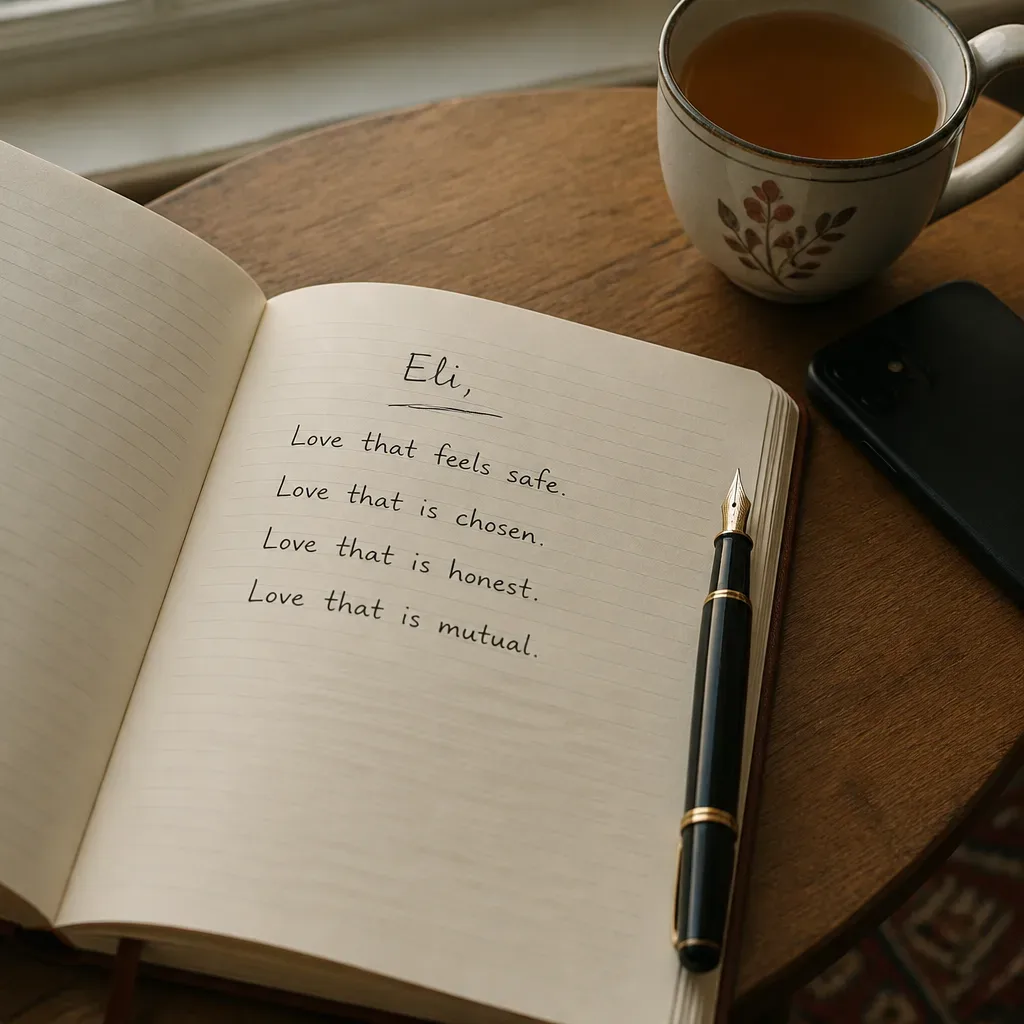 Eli,
Love that feels safe.
Love that is chosen.
Love that is honest.
Love that is mutual.